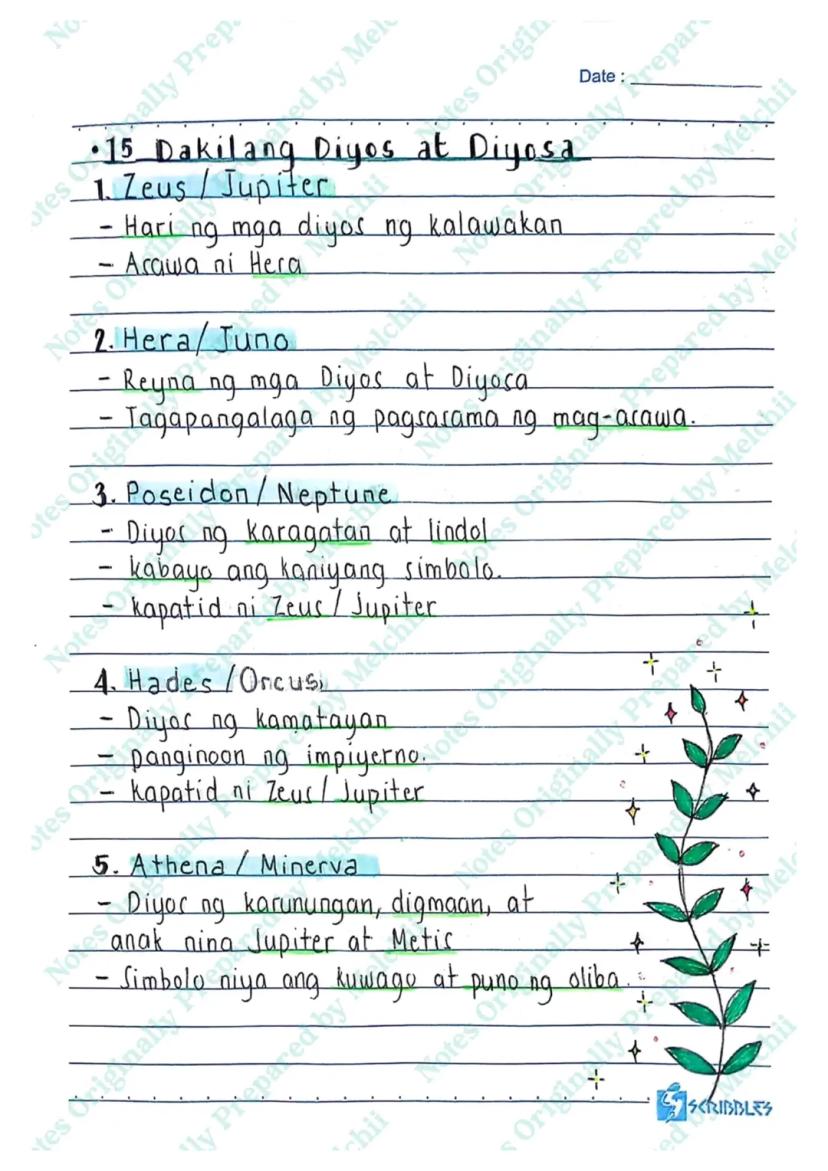 Date :
• 15 Dakilang Diyos at Diyosa
1. Zeus / Jupiter
- Hari ng mga diyos ng kalawakan
- Asawa ni Hera
2. Hera / Juno
- Reyna ng mga Diyos at Diyosa
- Tagapangalaga ng pagsasama ng mag-asawa.
3. Poseidon / Neptune
- Diyos ng karagatan at lindol
- kabayo ang kaniyang simbolo.
- kapatid ni Zeus / Jupiter
4. Hades / Orcus
- Diyos ng kamatayan
- panginoon ng impiyerno.
- kapatid ni Zeus / Jupiter
5. Athena / Minerva
- Diyos ng karunungan, digmaan, at
anak nina Jupiter at Metis
- Simbolo niya ang kuwago at puno ng oliba.
SCRIBBLES
Notes Originally Prepared by Melchii